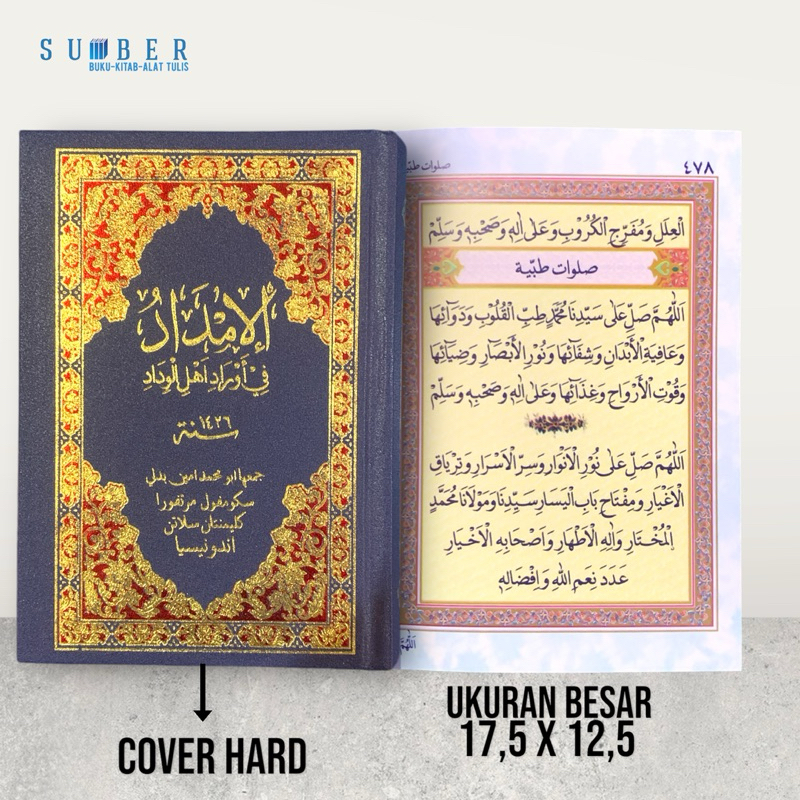 SUMBER
BUKU-KITAB-ALAT TULIS
الإمْدَادُ
فِيْ أَوْرَادِ أَهْلِ الْوِدَادِ
سنة ١٤٣٦
جمعها ابو محمد امين بدلي
سكومفول مرتفورا
كليمنتان سلاتن
أندونيسيا
صلوات طبّية
٤٧٨
الْعِلَلِ وَمُفَرِّجِ الْكُرُوْبِ وَعَلٰى اٰلِهٖ وَصَحْبِهٖ وَسَلِّمْ
صلوات طبّية
اَللّٰهُمَّ صَلِّ عَلٰى سَيِّدِنَا مُحَمَّدٍ طِبِّ الْقُلُوْبِ وَدَوَآئِهَا
وَعَافِيَةِ الْأَبْدَانِ وَشِفَآئِهَا وَنُوْرِ الْأَبْصَارِ وَضِيَآئِهَا
وَقُوْتِ الْأَرْوَاحِ وَغِذَآئِهَا وَعَلٰى اٰلِهٖ وَصَحْبِهٖ وَسَلِّمْ
اَللّٰهُمَّ صَلِّ عَلٰى نُوْرِ الْاَنْوَارِ وَسِرِّ الْاَسْرَارِ وَتِرْيَاقِ
الْاَغْيَارِ وَمِفْتَاحِ بَابِ الْيَسَارِ سَيِّدِنَا وَمَوْلَانَا مُحَمَّدٍ
الْمُخْتَارِ وَاٰلِهِ الْاَطْهَارِ وَاَصْحَابِهِ الْاَخْيَارِ
عَدَدَ نِعَمِ اللهِ وَاِفْضَالِهٖ
اَللّٰهُمَّ
COVER HARD
UKURAN BESAR
17,5 X 12,5